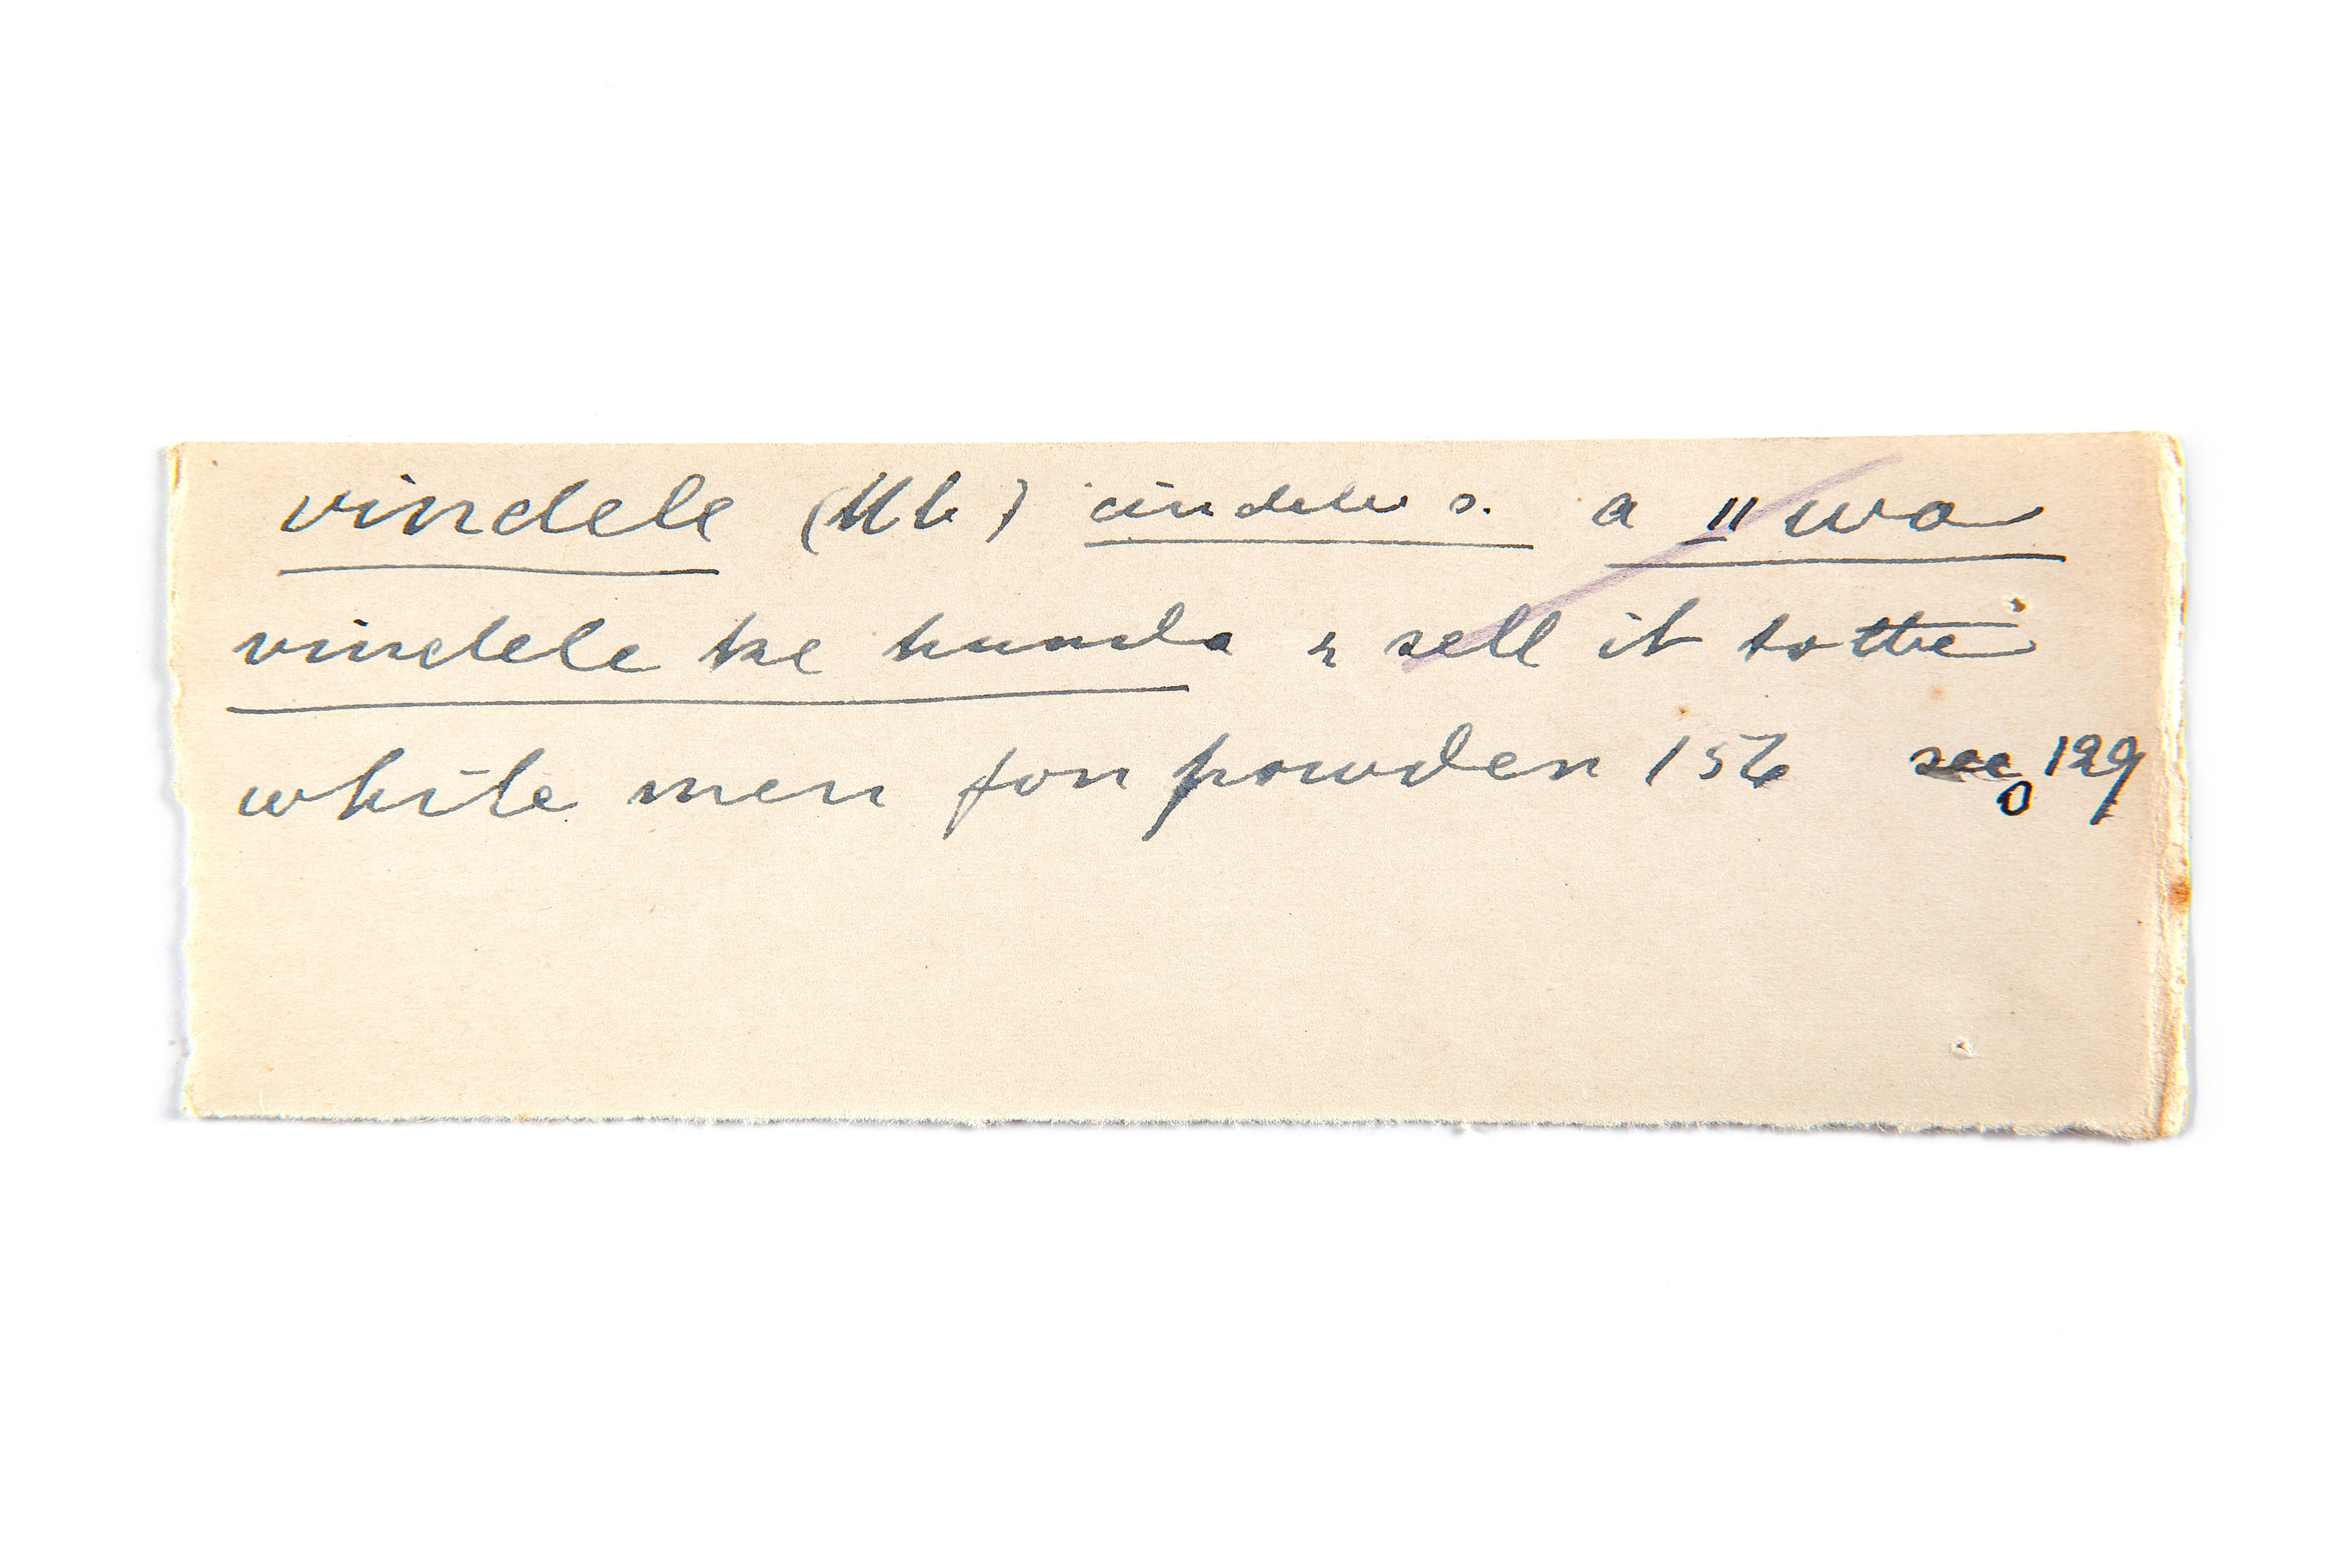 vindele (Ub) cindele s. a 11 wa
vindele ke hunda & sell it to the
white men for powder 156 see 129